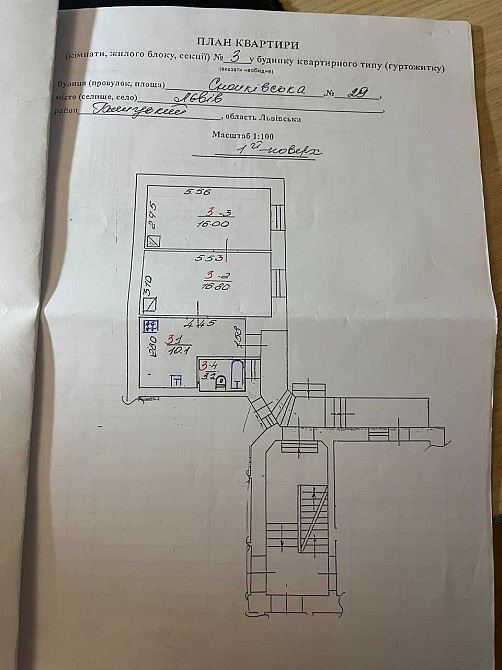 ПЛАН КВАРТИРИ
(кімнати, жилого блоку, секції) № 3 у будинку квартирного типу (гуртожитку)
(вказати необхідне)
Вулиця (провулок, площа) , № 29 ,
місто (селище, село) Львів ,
район Галицький , область Львівська
Масштаб 1:100
1й поверх
5.56
2.95
3-3
16.00
5.53
3.10
3-2
16.80
4.45
3-1
10.1
1.58
3-4
3.2